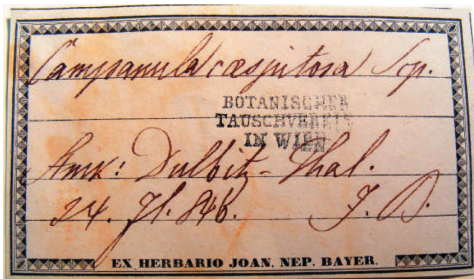 Campanula cæspitosa Scp.
BOTANISCHER
TAUSCHVEREIN
IN WIEN
Thal.
24. Jl. 846. J. B.
EX HERBARIO JOAN. NEP. BAYER.